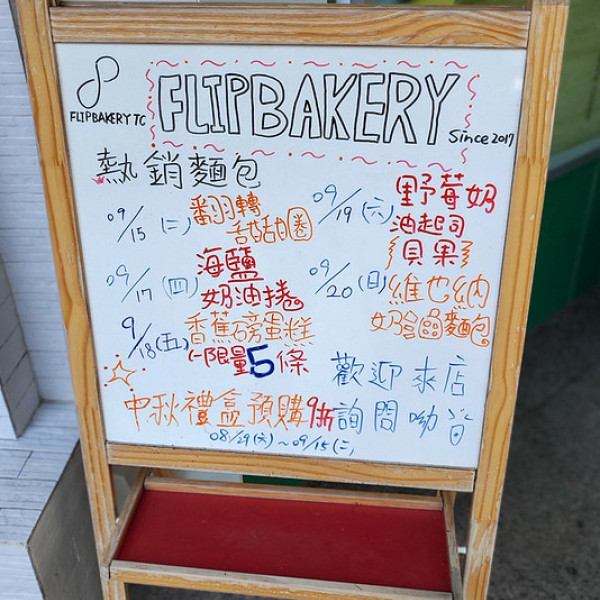 FLIPBAKERY TC
FLIPBAKERY
Since 2017
熱銷麵包
09/15 (二) 翻轉
甜甜圈
09/17 (四) 海鹽
奶油捲
9/18 (五) 香蕉磅蛋糕
~限量5條
09/19 (六) 野莓奶
油起司
貝果
09/20 (日) 維也納
奶油麵包
歡迎來店
詢問呦
中秋禮盒預購9折
08/29(六)~09/15(二)